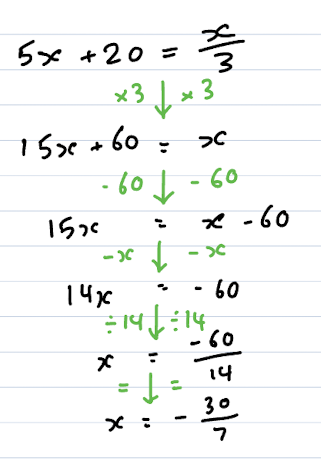 5x + 20 = x/3
×3 ↓ ×3
15x + 60 = x
- 60 ↓ - 60
15x = x - 60
- x ↓ - x
14x = - 60
÷ 14 ↓ ÷ 14
x = - 60/14
= ↓ =
x = - 30/7